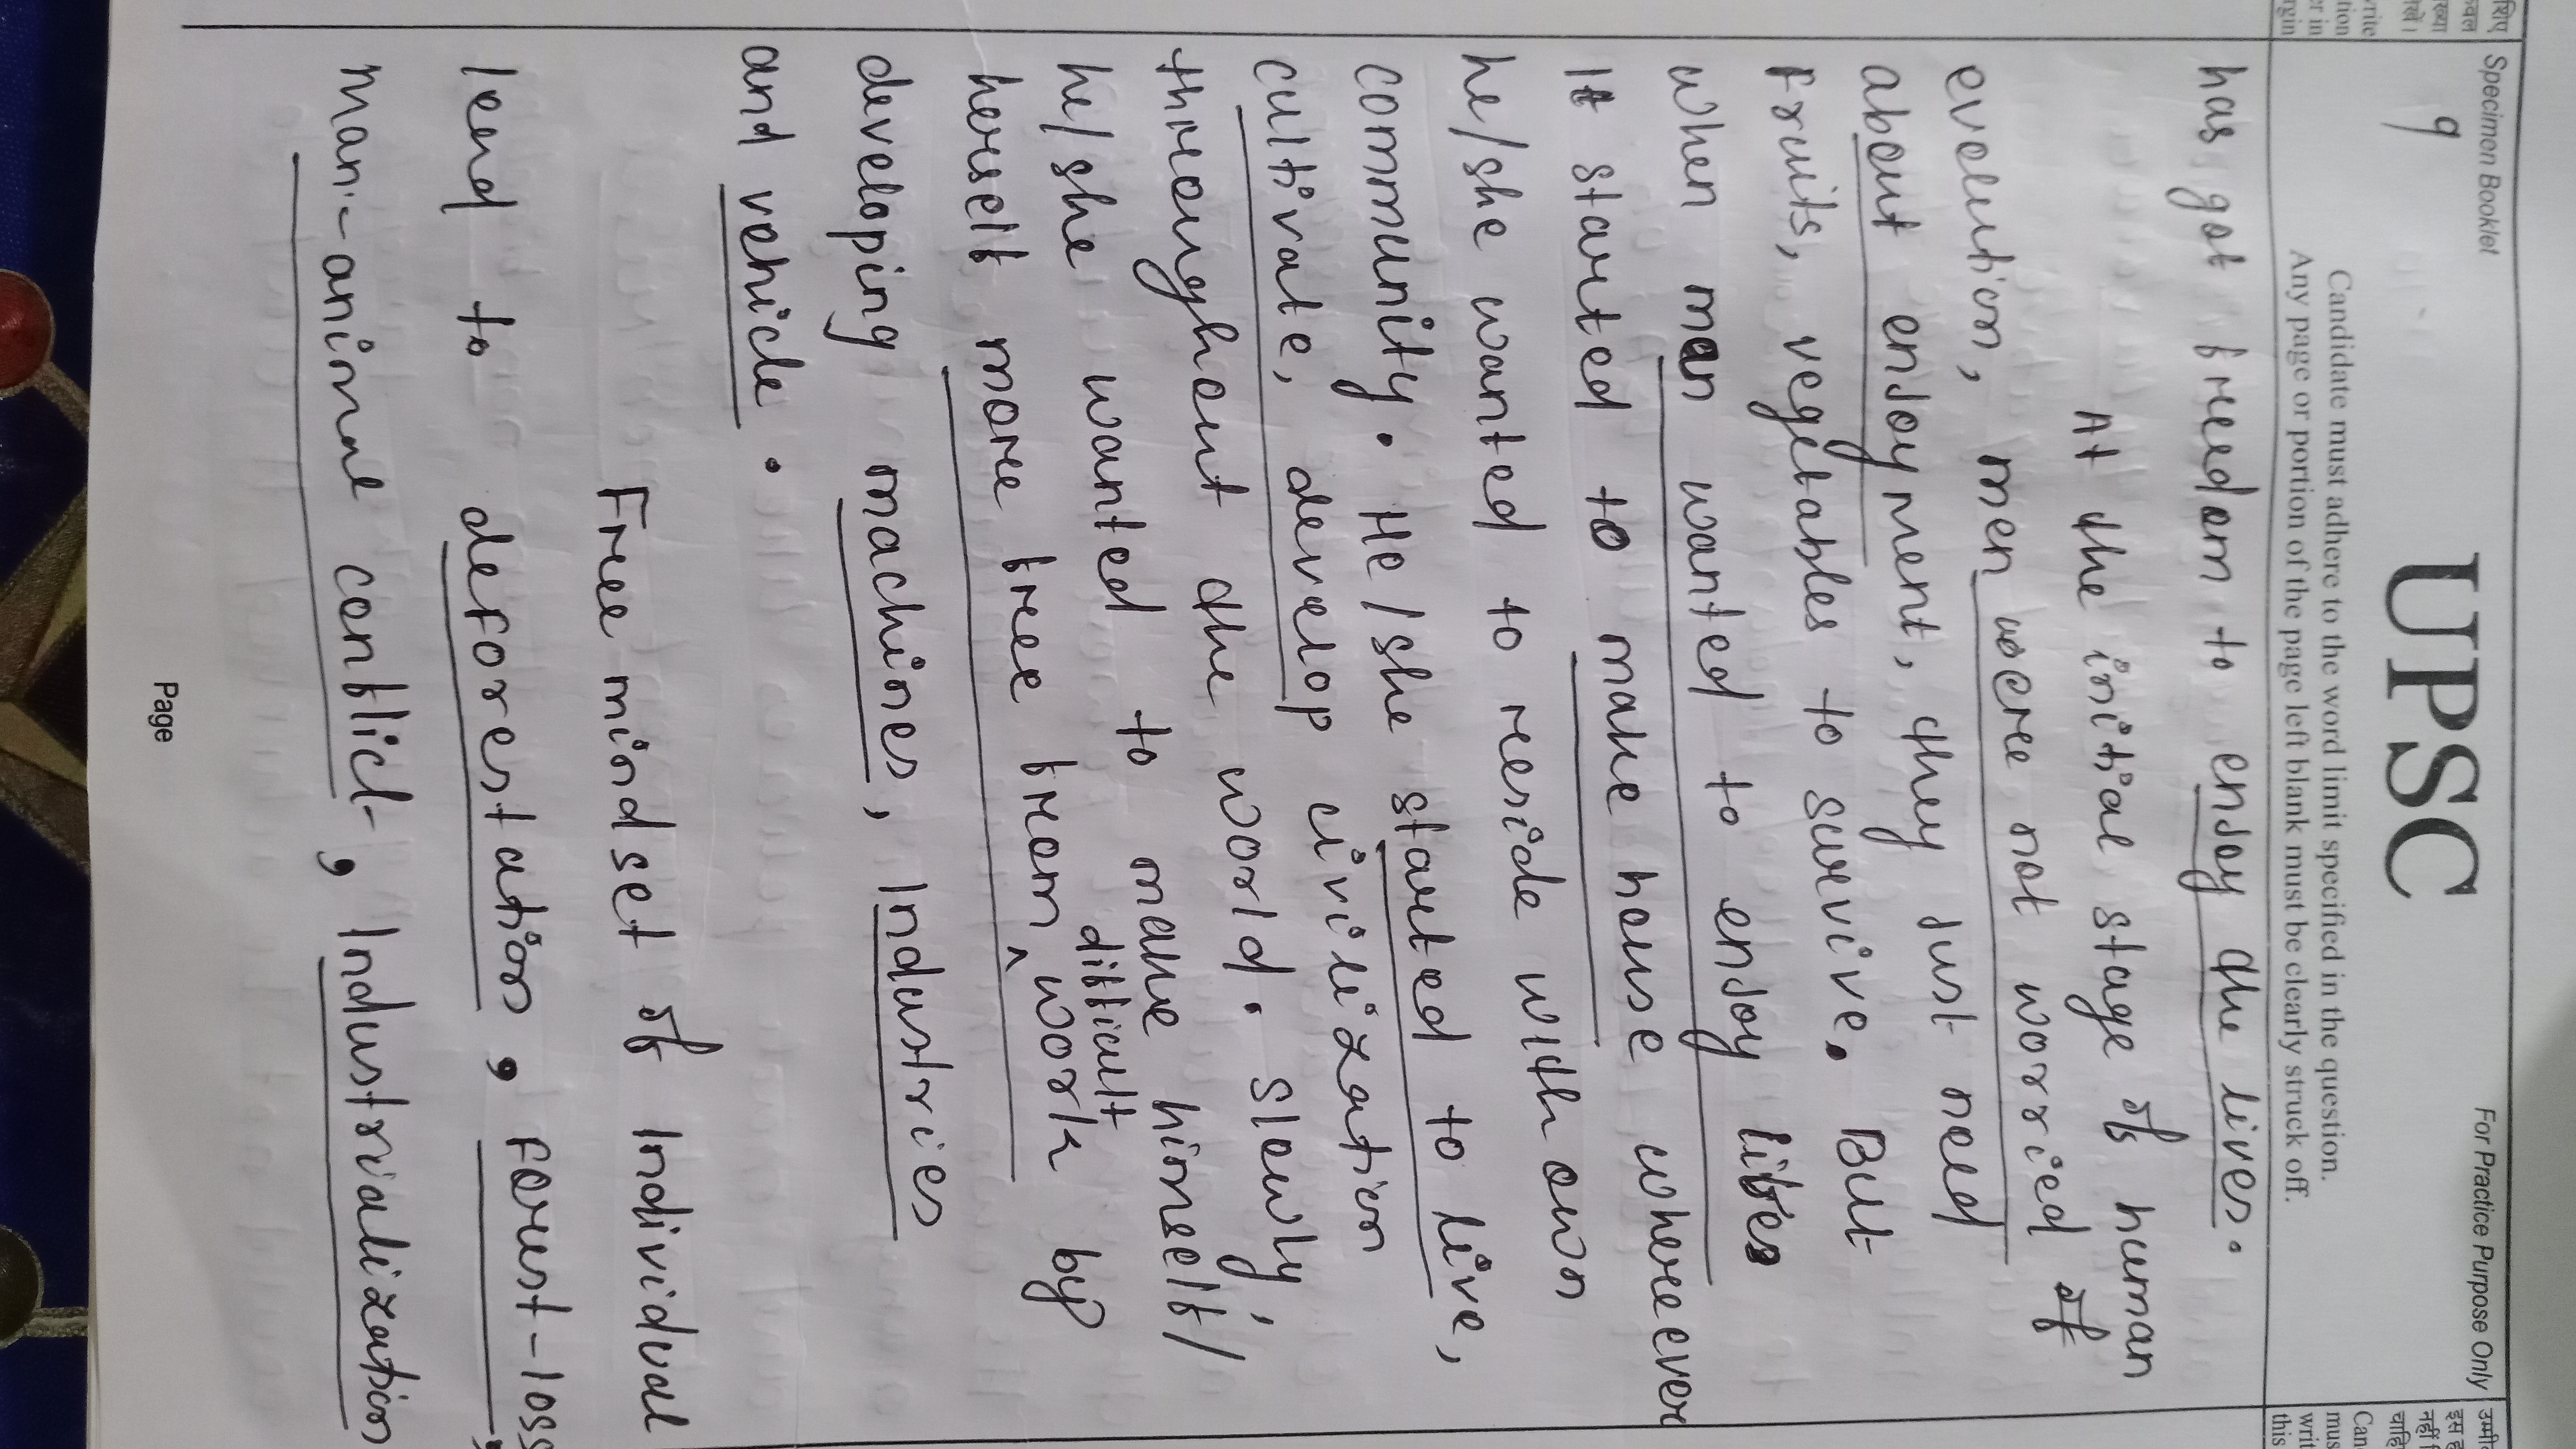 Specimen Booklet
For Practice Purpose Only
9
UPSC
Candidate must adhere to the word limit specified in the question.
Any page or portion of the page left blank must be clearly struck off.
has got freedom to enjoy the lives.
At the initial stage of human
evolution, men were not worried of
about enjoyment, they just need
Fruits, vegetables to survive. But
when man wanted to enjoy lifes
It started to make house whereever
he/she wanted to reside with own
community. He/she started to live,
cultivate, develop civilization
throughout the world. slowly,
he/she wanted to make himself/
herself more free from difficult work by
developing machines, Industries
and vehicle.
Free mindset of Individual
lend to deforestation, Forest-loss
man-animal conflict, Industrialization
Page